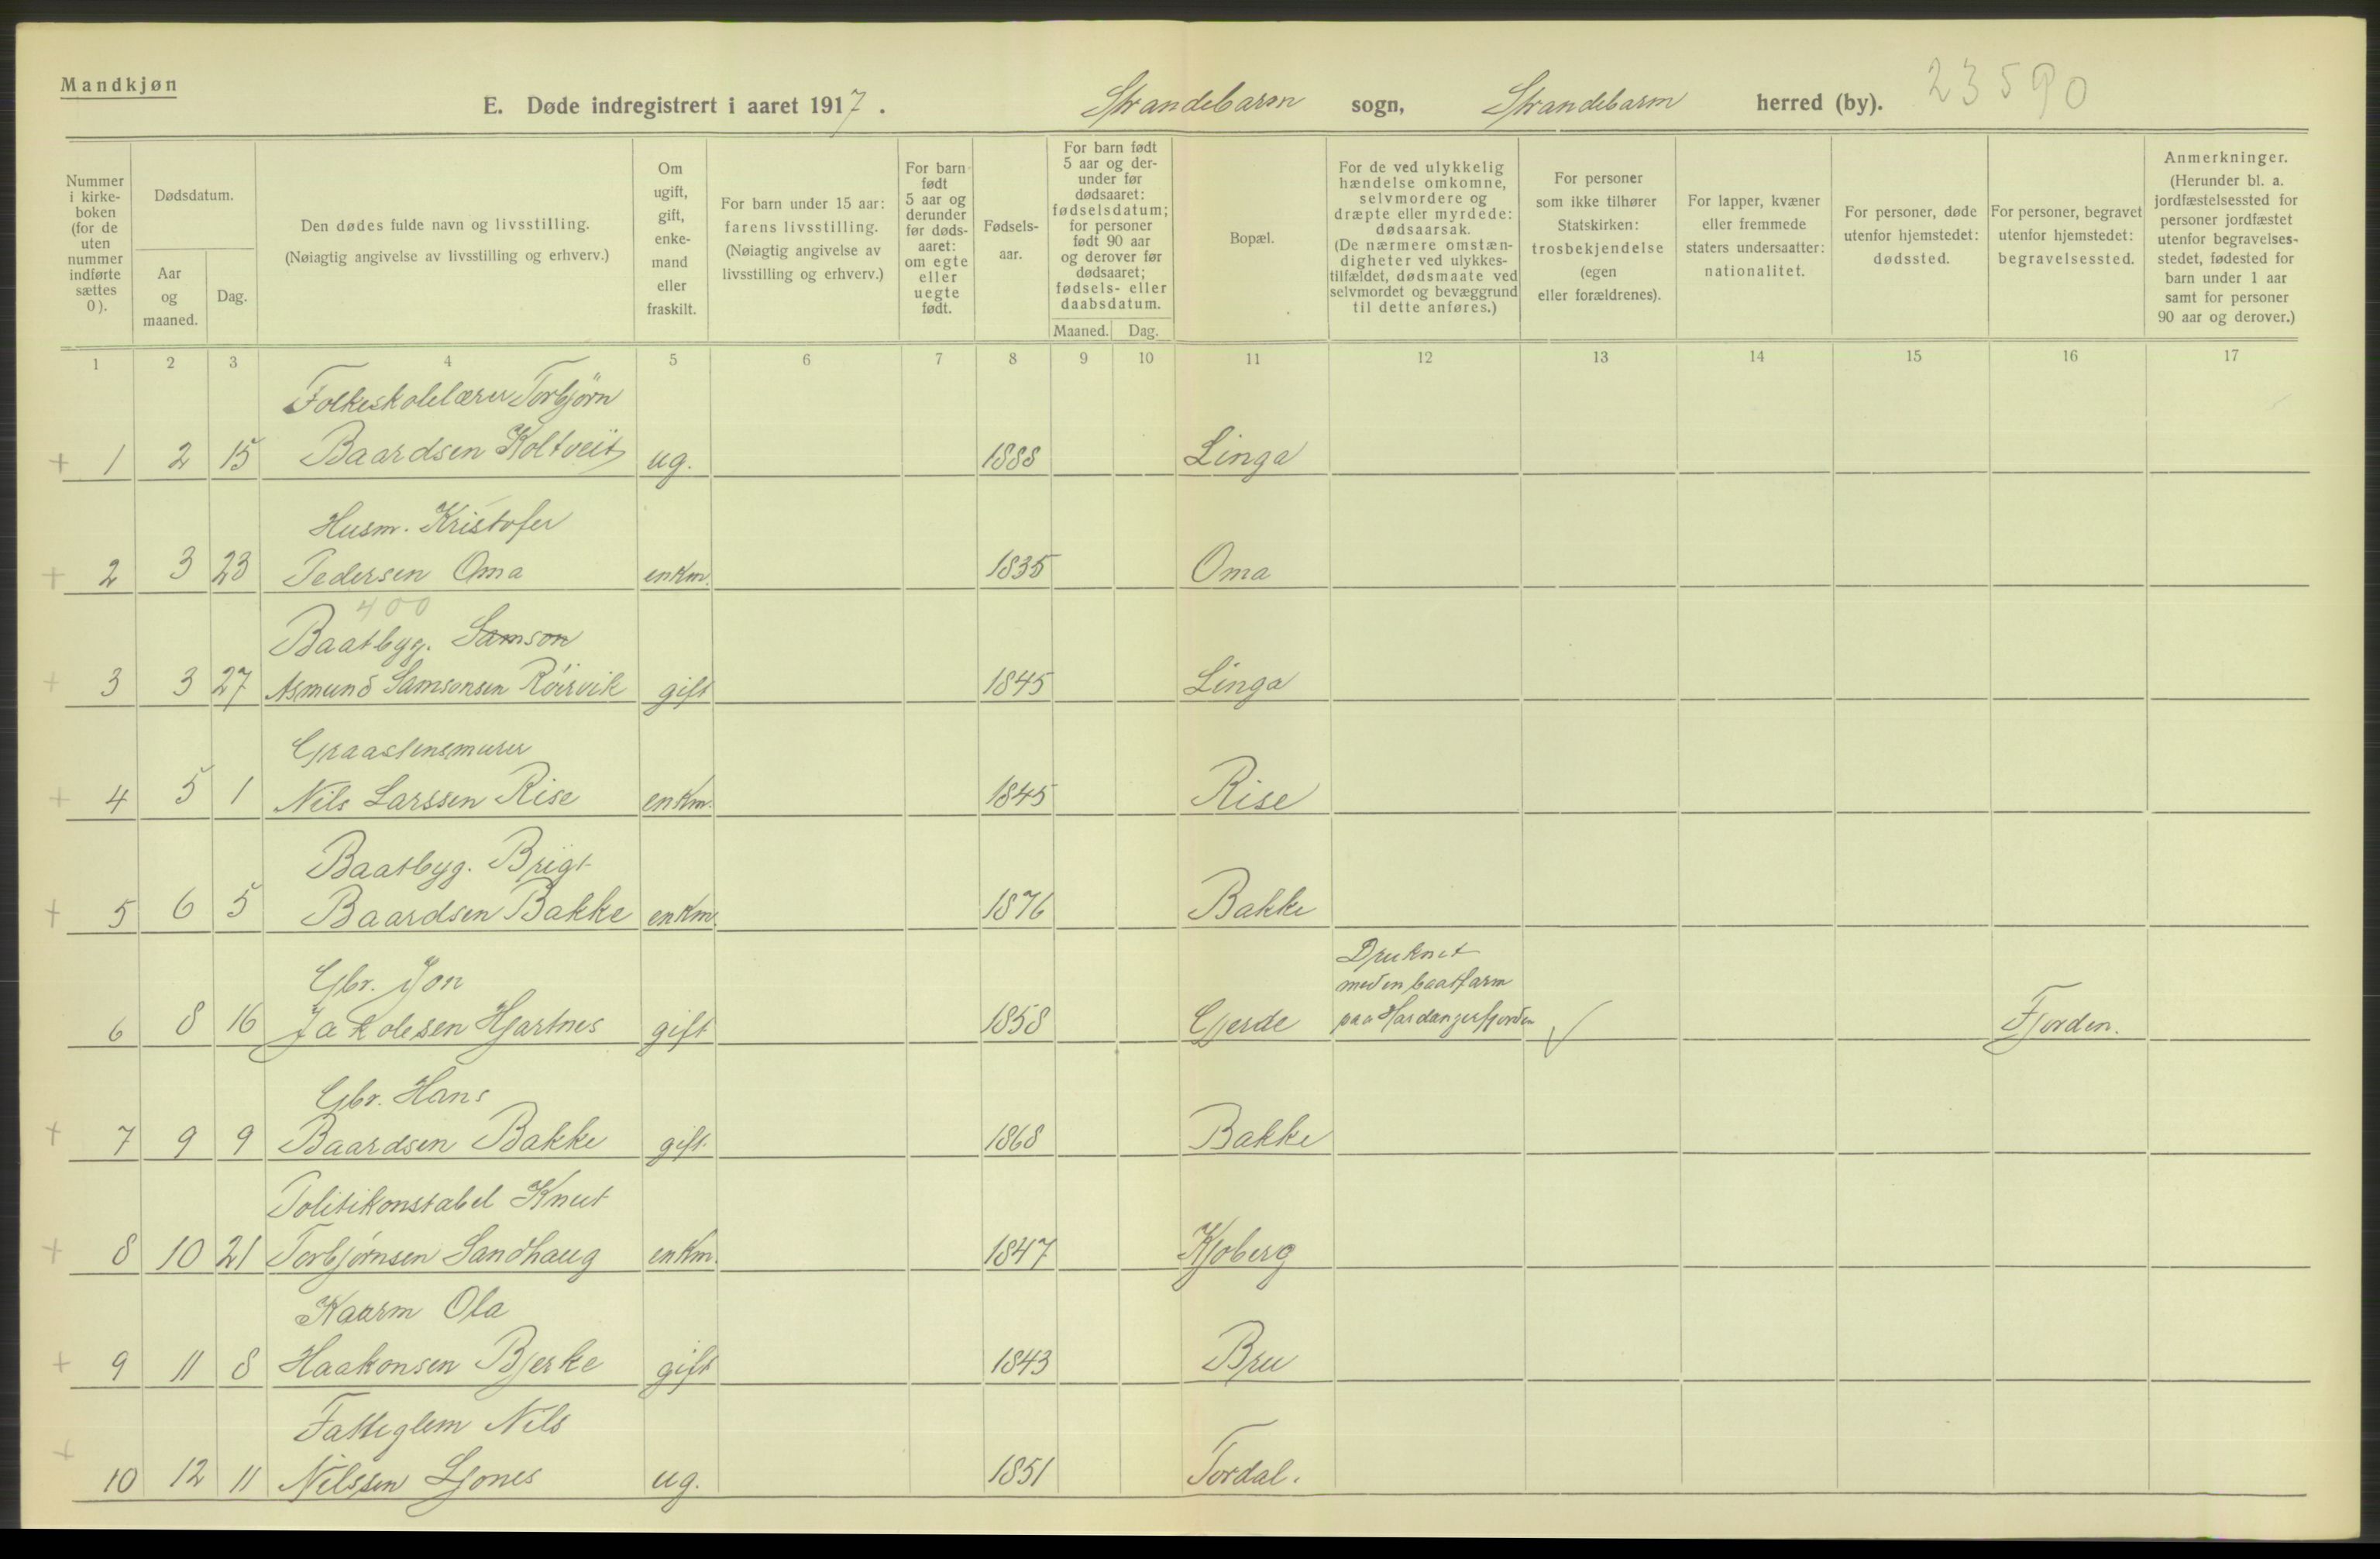 Mandkjøn
E. Døde indregistrert i aaret 1917. Strandebarm sogn, Strandebarm herred (by). 23590
Nummer i kirke-boken (for de uten nummer indførte sættes 0).
Dødsdatum.
Aar og maaned.
Dag.
Den dødes fulde navn og livsstilling.
(Nøiagtig angivelse av livsstilling og erhverv.)
Om ugift, gift, enke-mand eller fraskilt.
For barn under 15 aar: farens livsstilling.
(Nøiagtig angivelse av livsstilling og erhverv.)
For barn født 5 aar og derunder før døds-aaret: om egte eller uegte født.
Fødsels-aar.
For barn født 5 aar og der-under før dødsaaret: fødselsdatum; for personer født 90 aar og derover før dødsaaret; fødsels- eller daabsdatum.
Maaned. Dag.
Bopæl.
For de ved ulykkelig hændelse omkomne, selvmordere og dræpte eller myrdede: dødsaarsak.
(De nærmere omstæn-digheter ved ulykkes-tilfældet, dødsmaate ved selvmordet og bevæggrund til dette anføres.)
For personer som ikke tilhører Statskirken: trosbekjendelse (egen eller forældrenes).
For lapper, kvæner eller fremmede staters undersaatter: nationalitet.
For personer, døde utenfor hjemstedet: dødssted.
For personer, begravet utenfor hjemstedet: begravelsessted.
Anmerkninger.
(Herunder bl. a. jordfæstelsessted for personer jordfæstet utenfor begravelses-stedet, fødested for barn under 1 aar samt for personer 90 aar og derover.)
1 2 3 4 5 6 7 8 9 10 11 12 13 14 15 16 17
Folkeskolelærer Torbjörn
+ 1 2 15 Baardsen Koltveit ug. 1888 Linga
Husm. Kristofer
+ 2 3 23 Pedersen Oma enkm. 1835 Oma
400
Baatbyg. Samson
+ 3 3 27 Asmund Samsonsen Röisvik gift 1845 Linga
Graastensmurer
+ 4 5 1 Nils Larssen Rise enkm. 1845 Rise
Baatbyg. Brigt
+ 5 6 5 Baardsen Bakke enkm. 1876 Bakke
Gbr. Jon
Druknet
med en baatfarm
6 8 16 Jakobsen Hjartnes gift 1858 Gjerde paa Hardangerfjorden ✓ Fjorden.
Gbr. Hans
+ 7 9 9 Baardsen Bakke gift 1868 Bakke
Politikonstabel Knut
+ 8 10 21 Torbjørnsen Sandhaug enkm. 1847 Kjoberg
Kaarm Ola
+ 9 11 8 Haakonsen Bjerke gift 1843 Bru
Fattiglem Nils
+ 10 12 11 Nilssen Ljones ug. 1851 Tordal.